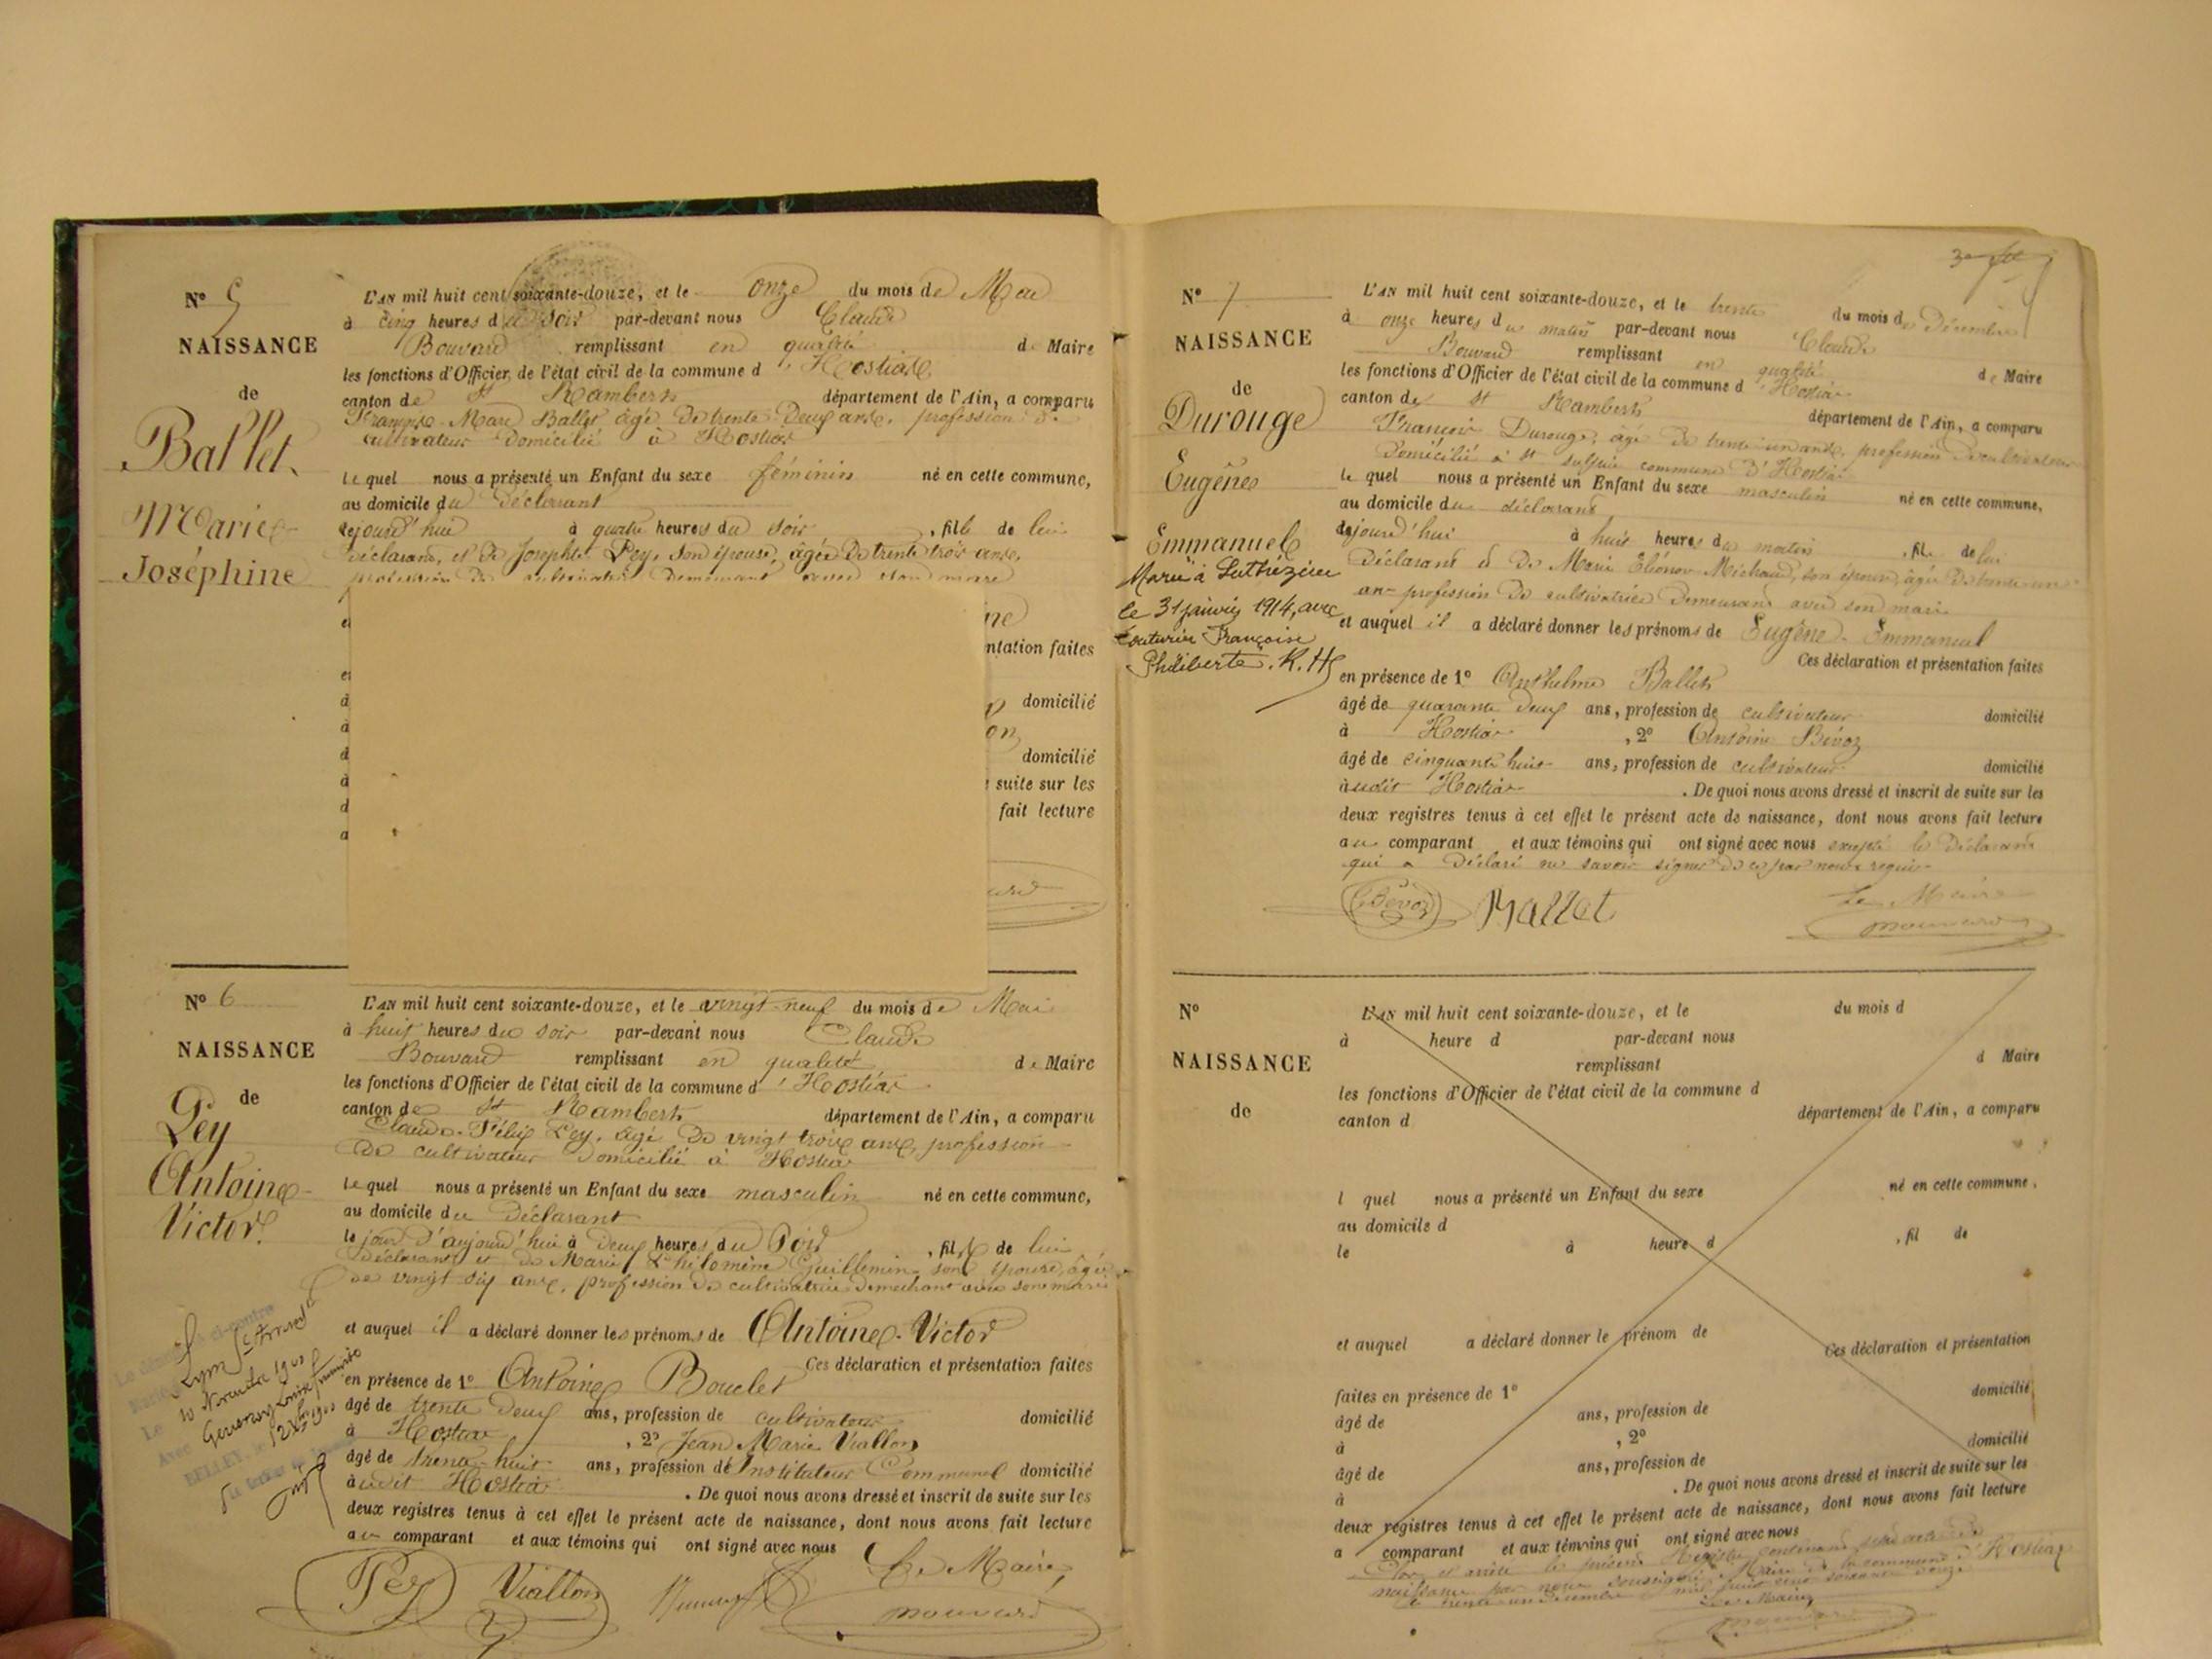 N° 5
NAISSANCE
de
Ballet
Marie
Joséphine
L'AN mil huit cent soixante-douze, et le onze du mois de Mai
à cinq heures du soir par-devant nous Claude
Bouvard remplissant en qualité de Maire
les fonctions d'Officier de l'état civil de la commune d'Hostiaz
canton de St Rambert département de l'Ain, a comparu
Ballet âgé de trente deux ans, profession de
cultivateur domicilié à Hostiaz
lequel nous a présenté un Enfant du sexe féminin né en cette commune,
au domicile du déclarant
cejourd'hui à quatre heures du soir, fille de lui
déclarant, et de Josephte Pey, son épouse, âgée de trente trois ans,
profession de cultivatrice demeurant avec son mari
ntation faites
domicilié
domicilié
suite sur les
fait lecture
N° 6
NAISSANCE
de
Pey
Antoine
Victor.
L'AN mil huit cent soixante-douze, et le vingt-neuf du mois de Mai
à huit heures du soir par-devant nous Claude
Bouvard remplissant en qualité de Maire
les fonctions d'Officier de l'état civil de la commune d'Hostiaz
canton de St Rambert département de l'Ain, a comparu
Claude-Félix Pey, âgé de vingt trois ans, profession
de cultivateur domicilié à Hostiaz
lequel nous a présenté un Enfant du sexe masculin né en cette commune,
au domicile du déclarant
le jour d'aujourd'hui à deux heures du soir, fils de lui
déclarant et de Marie Philomène Guillemin son épouse, âgée
de vingt six ans, profession de cultivatrice demeurant avec son mari
et auquel il a déclaré donner les prénoms de Antoine-Victor
Ces déclaration et présentation faites
en présence de 1° Antoine Bouclet
âgé de trente deux ans, profession de cultivateur domicilié
à Hostiaz, 2° Jean Marie Viallon
âgé de trente-huit ans, profession d'Instituteur Communal domicilié
à udit Hostiaz. De quoi nous avons dressé et inscrit de suite sur les
deux registres tenus à cet effet le présent acte de naissance, dont nous avons fait lecture
au comparant et aux témoins qui ont signé avec nous
Le Maire,
Pey Viallon Bouvard
N° 7
NAISSANCE
de
Durouge
Eugène
Emmanuel
Marié à Luthézieu
le 31 janvier 1914, avec
Couturier Françoise
Philiberte. R. H
L'AN mil huit cent soixante-douze, et le trente du mois de Décembre
à onze heures du matin par-devant nous Claude
Bouvard remplissant en qualité de Maire
les fonctions d'Officier de l'état civil de la commune d'Hostiaz
canton de St Rambert département de l'Ain, a comparu
François Durouge, âgé de trente un ans, profession de cultivateur
domicilié à St Sulpice commune d'Hostiaz
lequel nous a présenté un Enfant du sexe masculin né en cette commune,
au domicile du déclarant
cejourd'hui à huit heures du matin, fils de lui
déclarant et de Marie Eléonor Michaud, son épouse, âgée de trente un
ans profession de cultivatrice demeurant avec son mari
et auquel il a déclaré donner les prénoms de Eugène-Emmanuel
Ces déclaration et présentation faites
en présence de 1° Anthelme Ballet
âgé de quarante deux ans, profession de cultivateur domicilié
à Hostiaz, 2° Antoine Bévoz
âgé de cinquante huit ans, profession de cultivateur domicilié
à udit Hostiaz. De quoi nous avons dressé et inscrit de suite sur les
deux registres tenus à cet effet le présent acte de naissance, dont nous avons fait lecture
au comparant et aux témoins qui ont signé avec nous excepté le déclarant
qui a déclaré ne savoir signer de ce par nous requis
Le Maire
Bévoz Ballet Bouvard
N°
NAISSANCE
de
L'AN mil huit cent soixante-douze, et le du mois d
à heure d par-devant nous
remplissant d Maire
les fonctions d'Officier de l'état civil de la commune d
canton d département de l'Ain, a comparu
l quel nous a présenté un Enfant du sexe né en cette commune,
au domicile d
le à heure d, fil de
et auquel a déclaré donner le prénom de
Ces déclaration et présentation
faites en présence de 1°
domicilié
âgé de ans, profession de
à, 2°
domicilié
âgé de ans, profession de
à. De quoi nous avons dressé et inscrit de suite sur les
deux registres tenus à cet effet le présent acte de naissance, dont nous avons fait lecture
a comparant et aux témoins qui ont signé avec nous
Clos et arrêté le présent Registre contenant sept actes de
naissance par nous soussigné Maire de la commune d'Hostiaz
le trente un Décembre mil huit cent soixante douze
Le Maire,
Bouvard